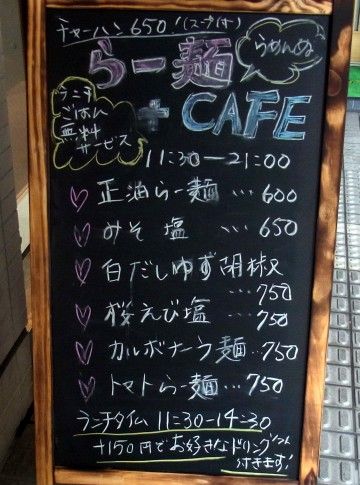 チャーハン650！(スープ付)
らーめんぬ
らー麺
+ CAFE
ランチ
ごはん
無料
サービス
11:30ー21:00
正油らー麺 … 600
みそ 塩 … 650
白だしゆず胡椒
… 750
桜えび塩 … 750
カルボナーラ麺 … 750
トマトらー麺 … 750
ランチタイム 11:30-14:30
+150円でお好きなドリンク
付きます!